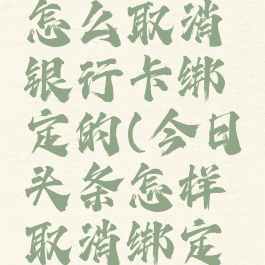 怎么取消
银行卡绑
定的(今日
头条怎样
取消绑定